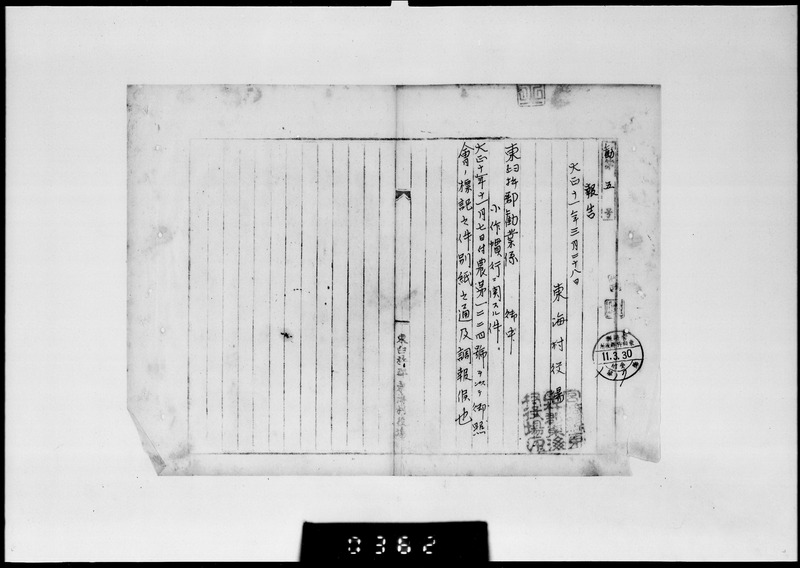 勧五号
報告
大正十一年三月二十八日
東海村役場
東臼杵郡勧業係 御中
小作慣行ニ関スル件
大正十年十一月七日付農第一二二四號ヲ以テ御照
會ノ標記之件別紙之通及調報候也
11.3.30
0362